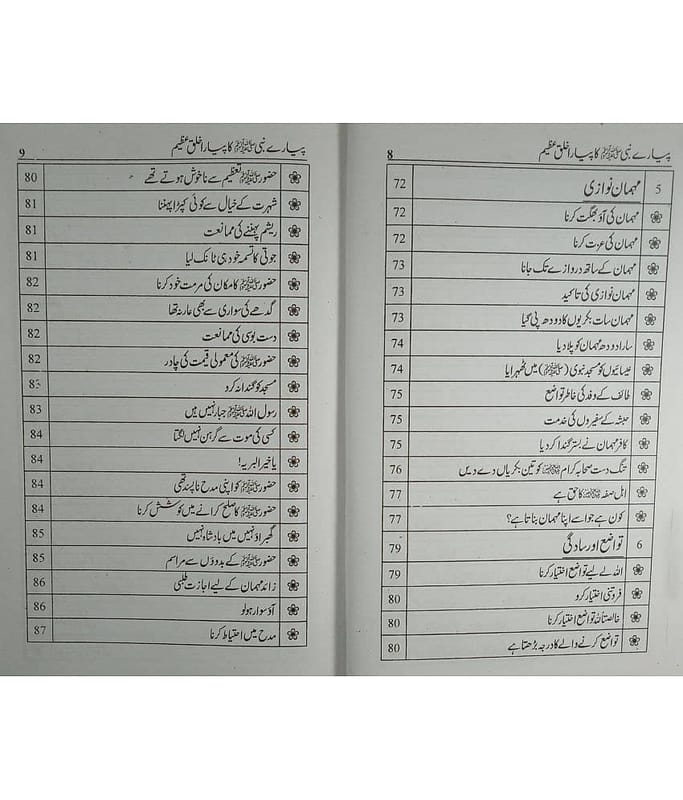 پیارے نبی ﷺ کا پیارا خلق عظیم 8
5 مہمان نوازی 72
مہمان کی آؤ بھگت کرنا 72
مہمان کی عزت کرنا 72
مہمان کے ساتھ دروازے تک جانا 73
مہمان نوازی کی تاکید 73
مہمان سات بکریوں کا دودھ پی گیا 73
سارا دودھ مہمان کو پلا دیا 74
عیسائیوں کو مسجد نبوی (ﷺ) میں ٹھہرایا 74
طائف کے وفد کی خاطر تواضع 75
حبشہ کے سفیروں کی خدمت 75
کافر مہمان نے بستر گندا کر دیا 75
تنگ دست صحابہ کرام کو تین بکریاں دے دیں 76
اہل صفہ کا حق ہے 77
کون ہے جو اسے اپنا مہمان بناتا ہے؟ 77
6 تواضع اور سادگی 79
اللہ کے لیے تواضع اختیار کرنا 79
فروتنی اختیار کرو 80
خالصتاً للہ تواضع اختیار کرنا 80
تواضع کرنے والے کا درجہ بڑھتا ہے 80
پیارے نبی ﷺ کا پیارا خلق عظیم 9
حضور ﷺ تعظیم سے ناخوش ہوتے تھے 80
شہرت کے خیال سے کوئی کپڑا پہننا 81
ریشم پہننے کی ممانعت 81
جوتی کا تسمہ خود ہی ٹانک لیا 81
حضور ﷺ کا مکان کی مرمت خود کرنا 82
گدھے کی سواری سے بھی عار نہ تھا 82
دست بوسی کی ممانعت 82
حضور ﷺ کی معمولی قیمت کی چادر 82
مسجد کو گندا نہ کرو 83
رسول اللہ ﷺ جبار نہیں ہیں 83
کسی کی موت سے گرہن نہیں لگتا 84
یا خیر البریہ! 84
حضور ﷺ کو اپنی مدح ناپسند تھی 84
حضور ﷺ کا صلح کرانے میں کوشش کرنا 84
گھبراؤ نہیں میں بادشاہ نہیں 85
حضور ﷺ کے بدوؤں سے مراسم 85
زائد مہمان کے لیے اجازت طلبی 86
آؤ سوار ہو لو 86
مدح میں احتیاط کرنا 87